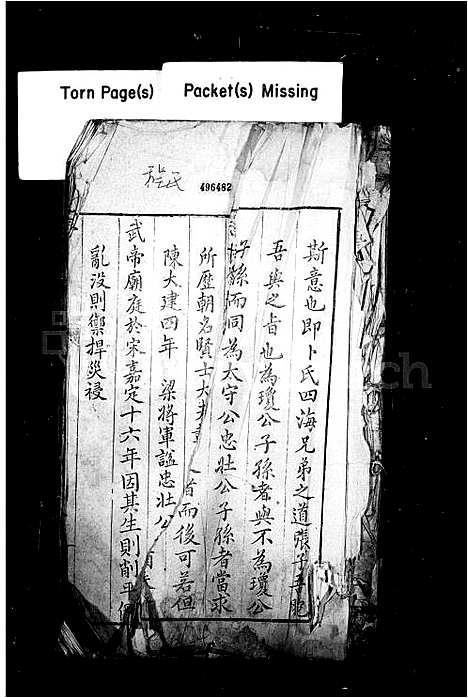 Torn Page(s)
Packet(s) Missing
程氏
496482
斯意也即卜氏四海兄弟之道張子吾胞
吾與之旨也為瓊公子孫者與不為瓊公
子孫而同為太守公忠壯公子孫者當求
所歷朝名賢士大夫
旨而後可若但
陳大建四年 梁將軍諡忠壯公
武帝廟庭於宋嘉定十六年因其生則削平
亂沒則禦捍災祲